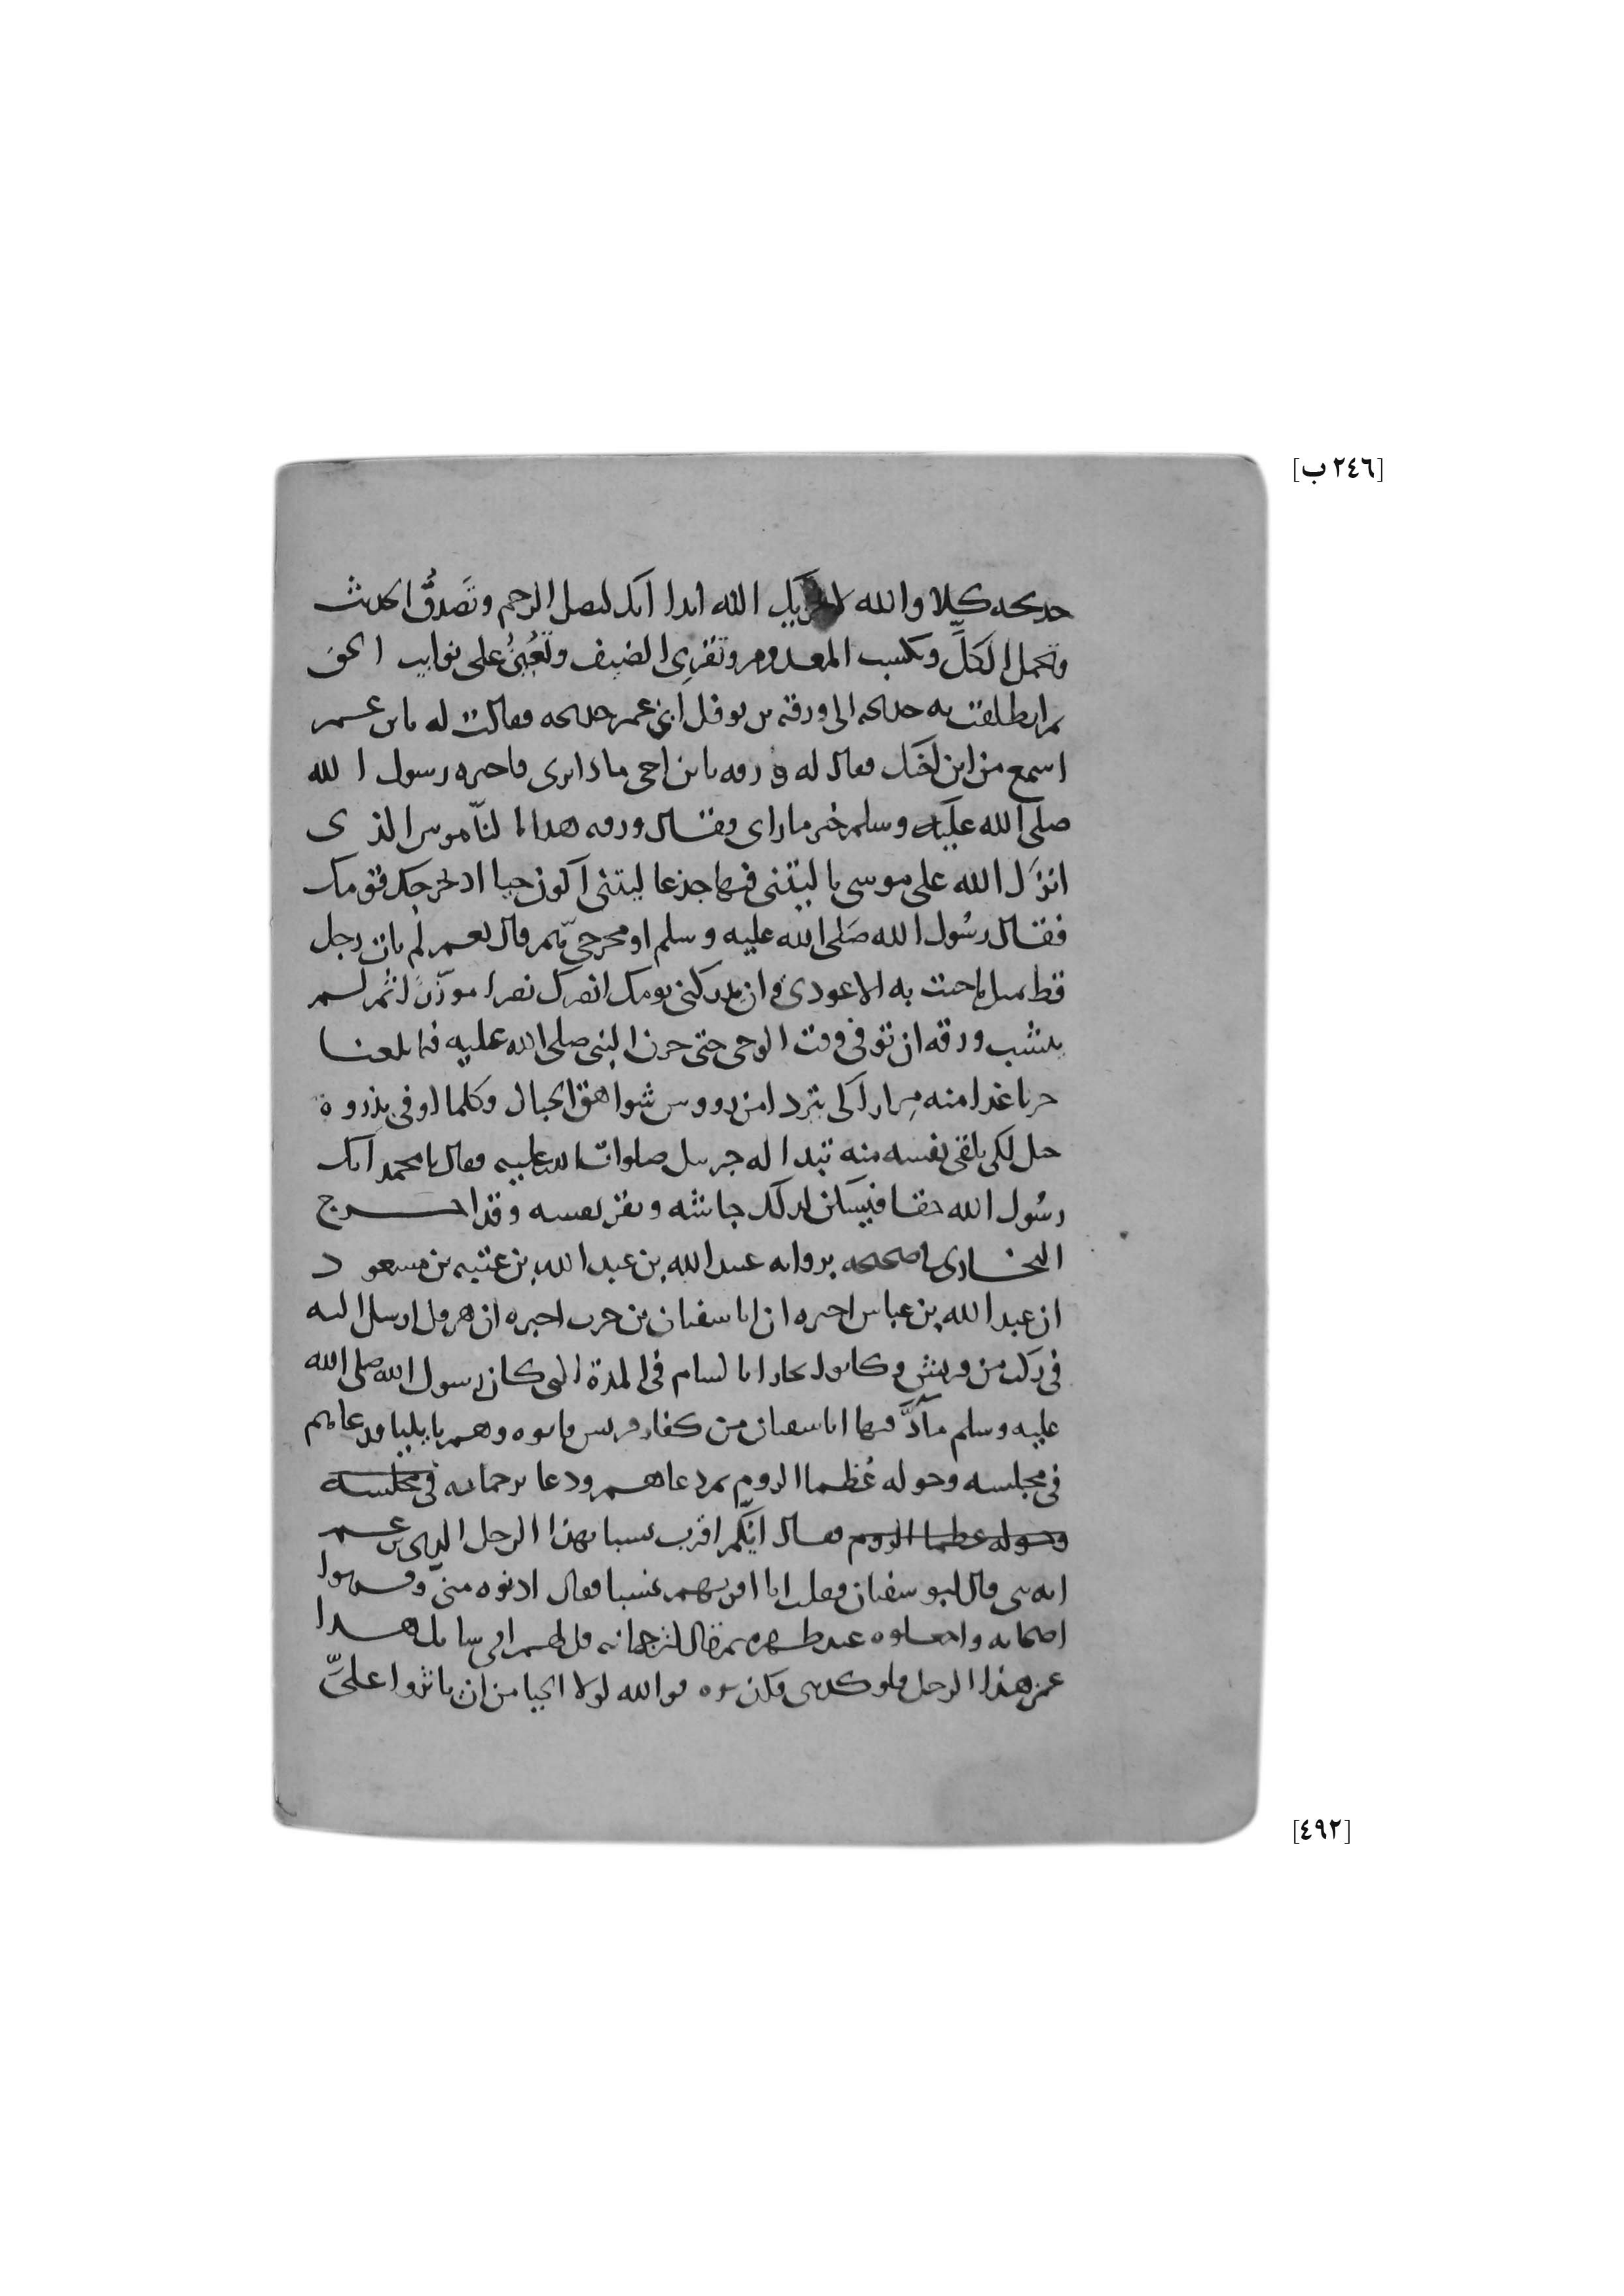 [٢٤٦ ب]
خديجه كلا والله لا يخزيك الله ابدا انك لتصل الرحم وتَصدُقُ الحديث
وتحمل الكَلَّ وتكسب المعدوم وتقرِى الضيف وتُعِينُ على نوايب الحق
ثم انطلقت به خديجه الى ورقة بن نوفل ابن عم خديجه فقالت له يا بن عم
اسمع من ابن اخيك فقال له ورقه يا بن اخي ماذا ترى فاخبره رسول الله
صلى الله عليه وسلم خبر ما راى فقال ورقه هذا الناموس الذى
انزل الله على موسى يا ليتنى فيها جذعا ليتنى اكون حيا اذ يخرجك قومك
فقال رسُول الله صَلى الله عليه وسلم او مخرجيّ هم قال نعم لم يات رجل
قط بمثل ما جيت به الا عودى وان يدركنى يومك انصرك نصرا موزرًا ثم لم
ينشب ورقه ان توفى وفتر الوحى حتى حزن النبى صلى الله عليه فيما بلغنا
حزنا غدا منه مِرارا كى يتردا من رووس شواهق الجبال وكلما اوفى بذِروة
جبل لكى يلقى نفسه منه تبدا له جبريل صلوات الله عليه فقال يا محمد انك
رسُول الله حقا فيسكن لذلك جاشه وتقر نفسه وقد اخرج
البخارى فى صحيحه بروايه عبيد الله بن عبد الله بن عتبه بن مسعود
ان عبد الله بن عباس اخبره ان ابا سفيان بن حرب اخبره ان هرقل ارسل اليه
فى ركب من قريش وكانوا تجارا بالشام فى المدة التى كان رسول الله صلى الله
عليه وسلم مآدَّ فيها ابا سفيان من كفار قريش فاتوه وهم بايليا فدعاهم
فى مجلسه وحوله عُظما الروم ثم دعاهم ودعا ترجمانه فى مجلسه
وحوله عظما الروم فقال ايّكم اقرب نسبا بهذا الرجل الذى يزعم
انه نبى قال ابو سفيان فقلت انا اقربهم نسبا فقال ادنوه منى وقربوا
اصحابه واجعلوه عند ظهره ثم قال لترجمانه قل لهم انى سايل هذا
عن هذا الرجل فلو كذبنى فكذبوه فوالله لولا الحيا من ان ياثروا علىَّ
[٤٩٢]